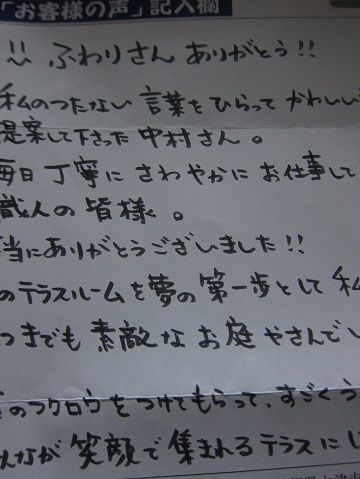 「お客様の声」記入欄
!! ふわりさん ありがとう!!
私のつたない 言葉を ひらって かわいい
提案して下さった 中村さん。
毎日 丁寧に さわやかに お仕事して
職人の 皆様。
当にありがとうございました!!
のテラスルームを夢の 第一歩として 私
つまでも 素敵な お庭 やさんでし
のフクロウをつけてもらって、すごくう
んなが 笑顔で 集まれるテラスにし